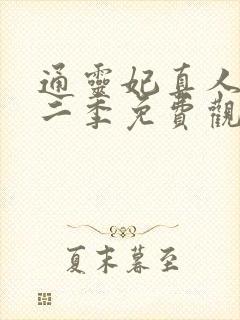 通靈妃真人
二季免費觀
夏末暮至